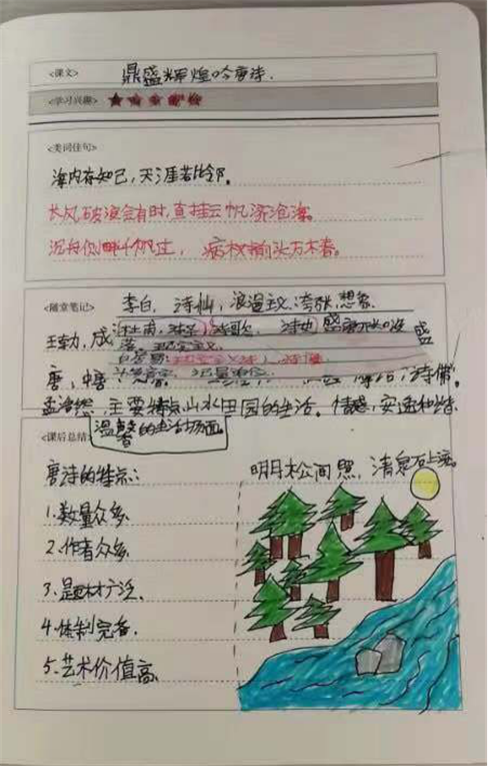 <课文> 鼎盛辉煌吟唐诗.
<学习兴趣>
<美词佳句>
海内存知己，天涯若比邻。
长风破浪会有时，直挂云帆济沧海。
沉舟侧畔千帆过，病树前头万木春。
<随堂笔记> 李白，诗仙，浪漫主义，夸张，想象
王勃，盛
落。现实主义
唐，中唐 诗佛。
孟浩然，主要特点山水田园的生活。情感，安适和谐
温馨的生活场面。
<课后总结>
唐诗的特点：
明月松间照，清泉石上流。
1.数量众多.
2.作者众多.
3.题材广泛.
4.体制完备.
5.艺术价值高